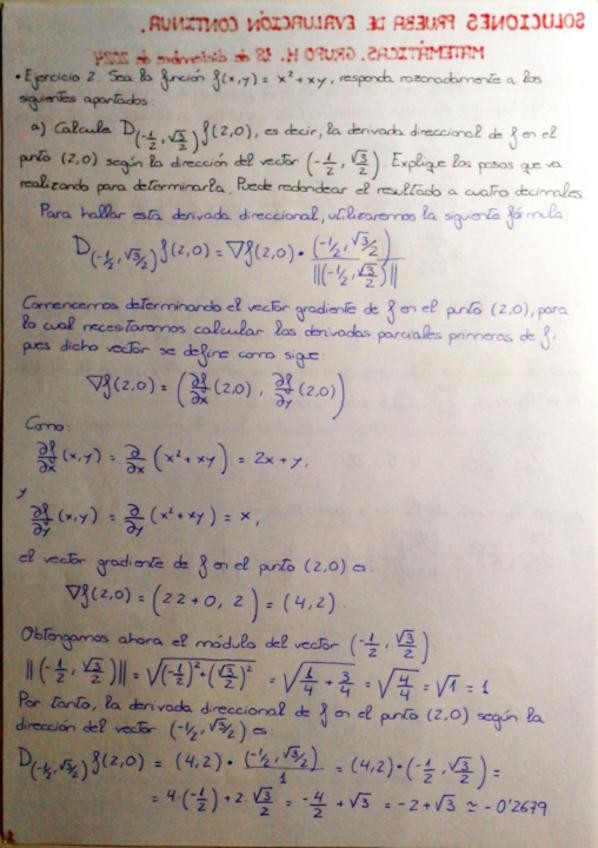 SOLUCIONES PRUEBA DE EVALUACIÓN CONTINUA.
MATEMÁTICAS. GRUPO H. 18 de diciembre de 2024
• Ejercicio 2. Sea la función f(x,y) = x² + xy, responda razonadamente a los
siguientes apartados:
a) Calcule D_(-1/2, √3/2) f(2,0), es decir, la derivada direccional de f en el
punto (2,0) según la dirección del vector (-1/2, √3/2). Explique los pasos que va
realizando para determinarla. Puede redondear el resultado a cuatro decimales.
Para hallar esta derivada direccional, utilizaremos la siguiente fórmula:
D_(-1/2, √3/2) f(2,0) = ∇f(2,0) · (-1/2, √3/2) / ||(-1/2, √3/2)||
Comencemos determinando el vector gradiente de f en el punto (2,0), para
lo cual necesitaremos calcular las derivadas parciales primeras de f,
pues dicho vector se define como sigue:
∇f(2,0) = (∂f/∂x (2,0), ∂f/∂y (2,0))
Como:
∂f/∂x (x,y) = ∂/∂x (x² + xy) = 2x + y,
y
∂f/∂y (x,y) = ∂/∂y (x² + xy) = x,
el vector gradiente de f en el punto (2,0) es:
∇f(2,0) = (2·2 + 0, 2) = (4,2).
Obtengamos ahora el módulo del vector (-1/2, √3/2):
||(-1/2, √3/2)|| = √((-1/2)² + (√3/2)²) = √(1/4 + 3/4) = √(4/4) = √1 = 1
Por tanto, la derivada direccional de f en el punto (2,0) según la
dirección del vector (-1/2, √3/2) es:
D_(-1/2, √3/2) f(2,0) = (4,2) · (-1/2, √3/2) / 1 = (4,2) · (-1/2, √3/2) =
= 4·(-1/2) + 2·√3/2 = -4/2 + √3 = -2 + √3 ≃ -0'2679